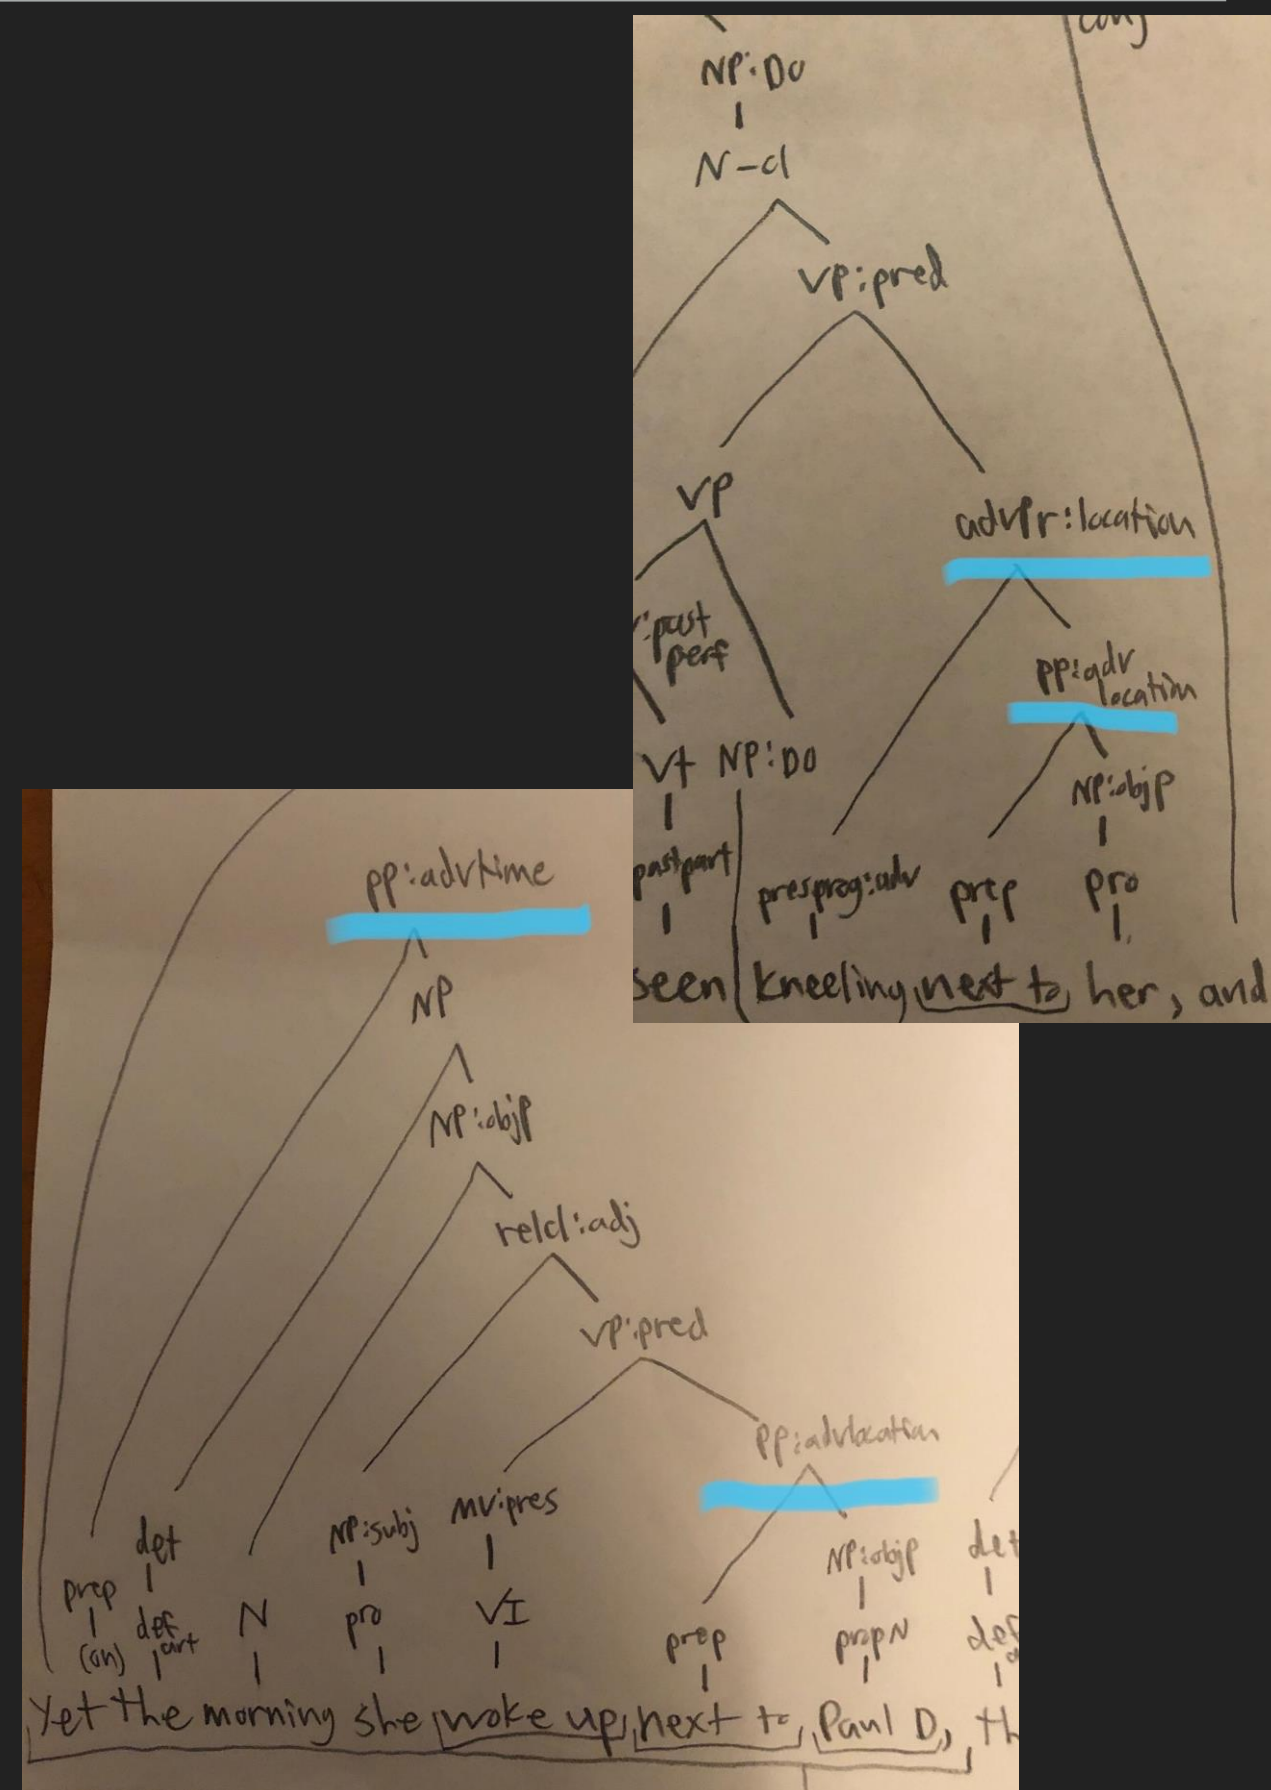 conj
NP:DO
N-cl
VP:pred
VP
advPr:location
:past
perf
pp:adv
location
Vt NP:DO
NP:objp
pastpart
presprog:adv
prep
pro
seen kneeling next to her, and
pp:advtime
NP
NP:objp
relcl:adj
vp:pred
pp:advlocation
det
NP:subj
MV:pres
NP:objp
det
prep
(on)
def
art
N
pro
VI
prep
propN
def
Yet the morning she woke up next to Paul D, th